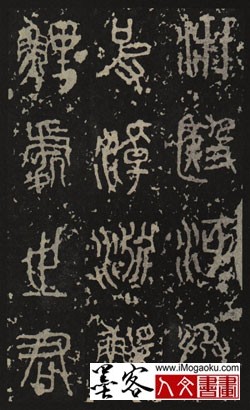 汧殹沔丞
皮淖淵鰋
鯉處之君
www.iMogaoku.com
墨客人文書畫